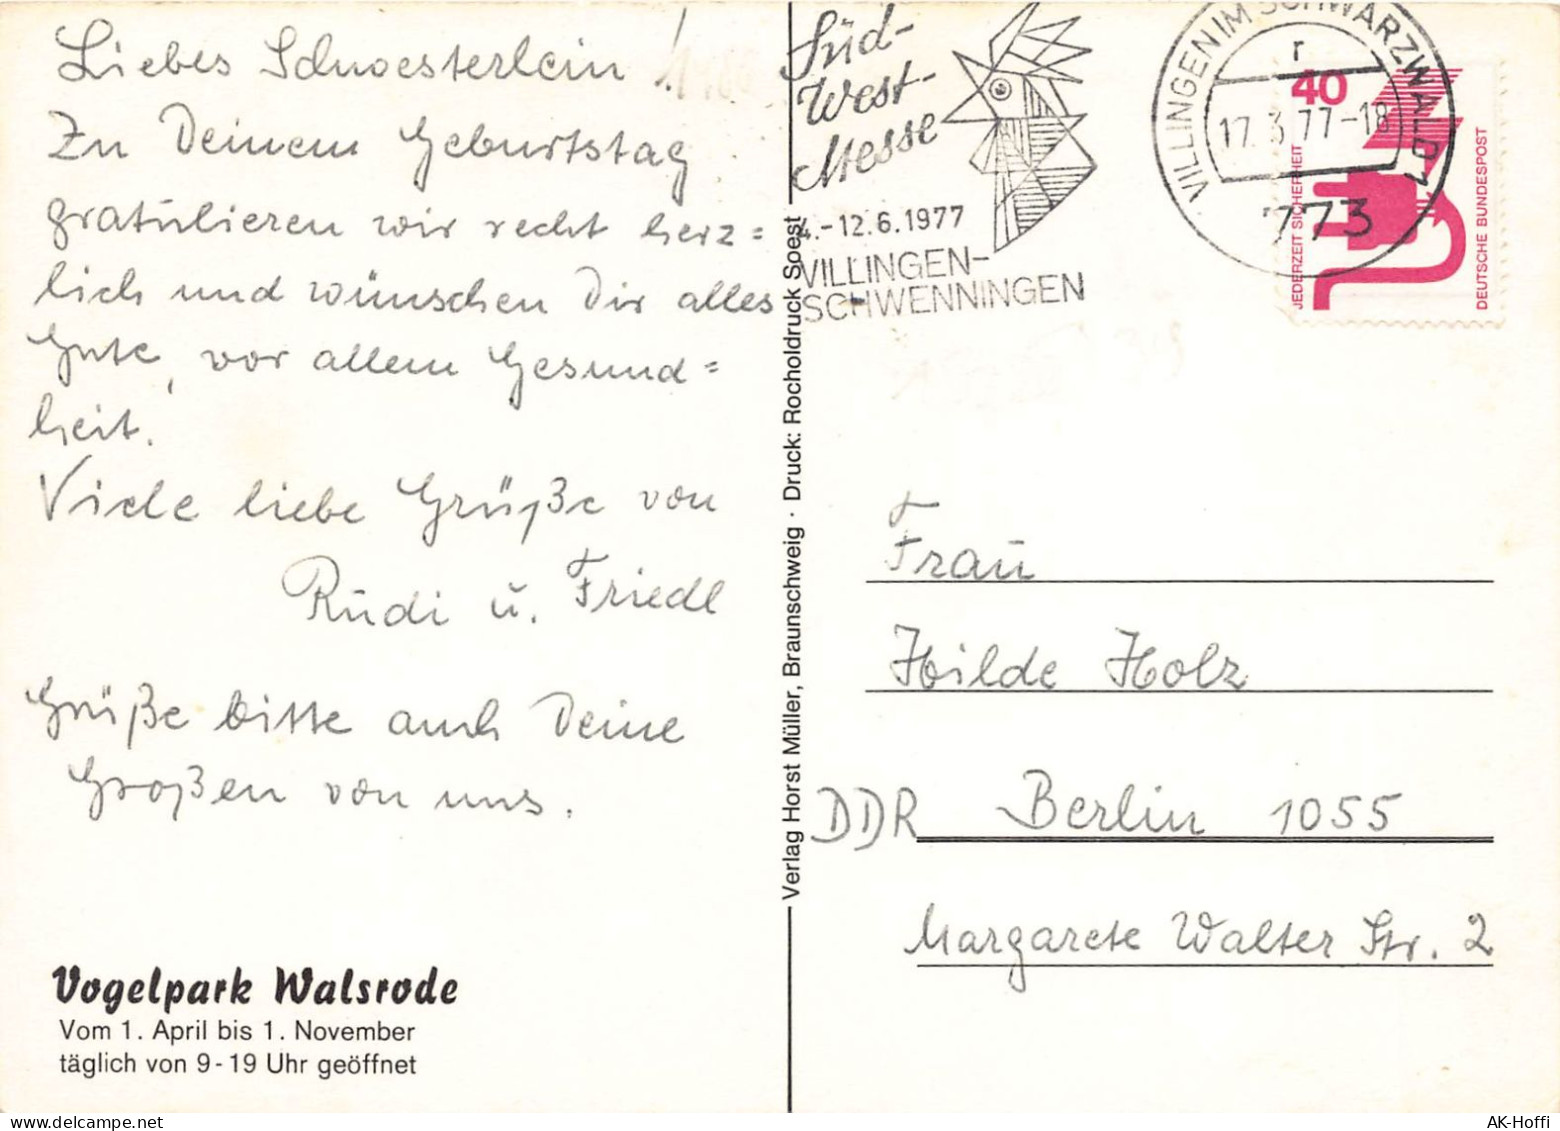 Liebes Schwesterlein
Zu Deinem Geburtstag
gratulieren wir recht herz=
lich und wünschen Dir alles
Gute, vor allem Gesund=
heit.
Viele liebe Grüße von
Rudi u. Friedl
Grüße bitte auch Deine
Großen von uns.
Vogelpark Walsrode
Vom 1. April bis 1. November
täglich von 9-19 Uhr geöffnet
Verlag Horst Müller, Braunschweig · Druck: Rocholdruck Soest
Süd-
West-
Messe
4.-12.6.1977
VILLINGEN-
SCHWENNINGEN
VILLINGEN IM SCHWARZWALD 1
r
17.3.77-18
773
40
JEDERZEIT SICHERHEIT
DEUTSCHE BUNDESPOST
Frau
Hilde Holz
DDR Berlin 1055
Margarete Walter Str. 2
AK-Hoffi